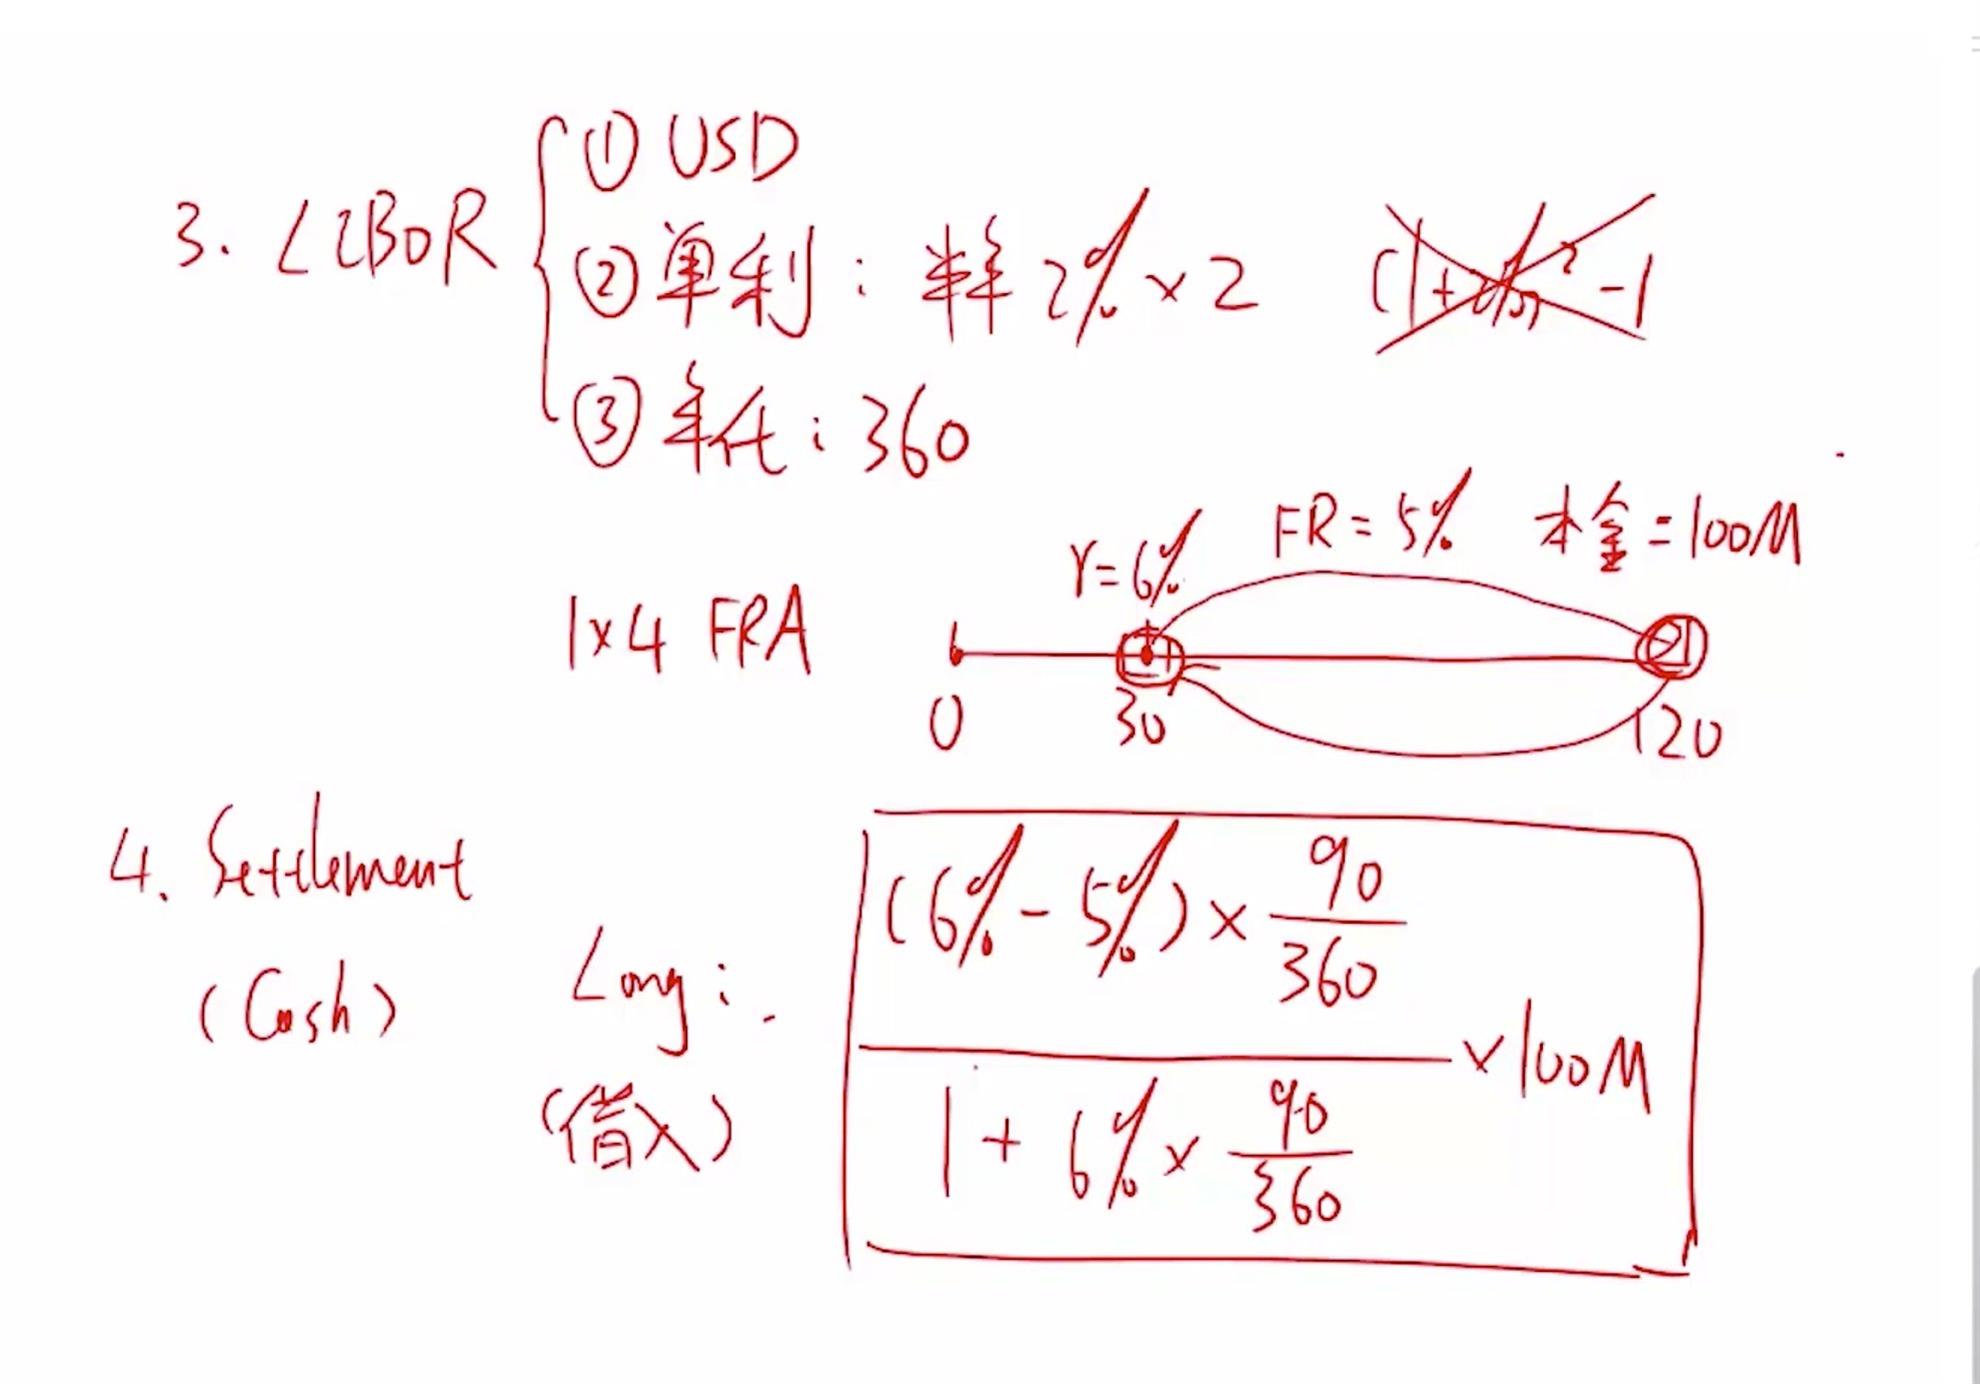 3. LIBOR
① USD
② 单利：半年 2% × 2 (1+2%)² -1
③ 年化：360
1×4 FRA
r=6% FR=5% 本金=100M
0 30 120
4. Settlement
(Cash)
Long:
(借入)
(6%-5%) × 90/360
1 + 6% × 90/360
×100M